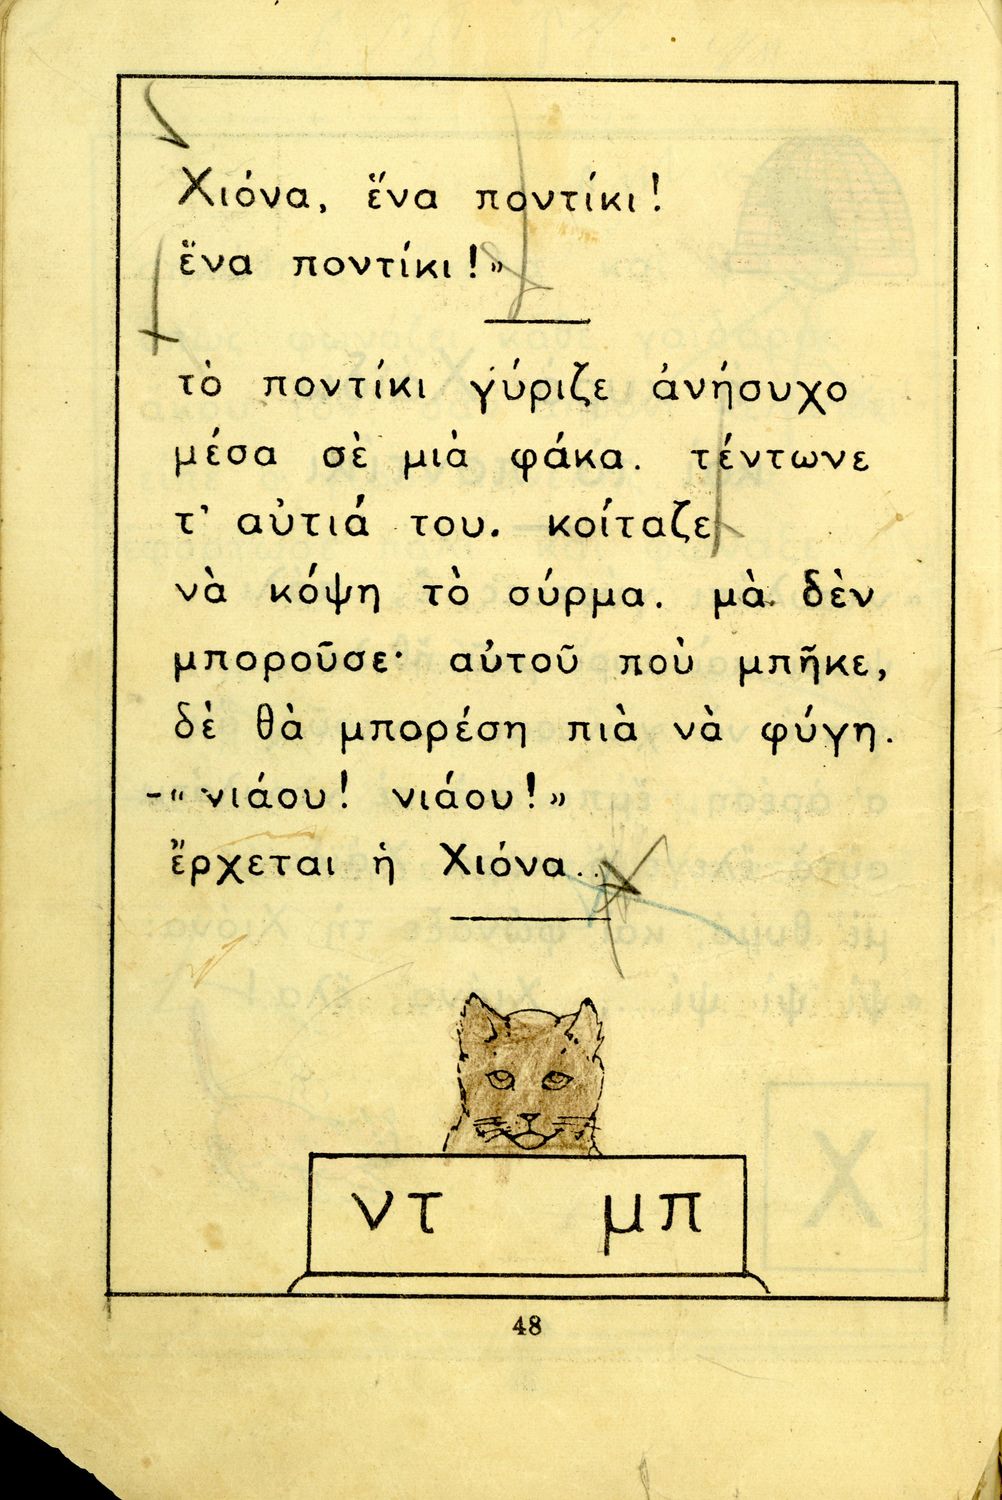 Χιόνα, ἕνα ποντίκι!
ἕνα ποντίκι!»
τὸ ποντίκι γύριζε ἀνήσυχο
μέσα σὲ μιὰ φάκα. τέντωνε
τ' αὐτιά του. κοίταζε
νὰ κόψη τὸ σύρμα. μὰ δὲν
μποροῦσε· αὐτοῦ ποὺ μπῆκε,
δὲ θὰ μπορέση πιὰ νὰ φύγη.
-«νιάου! νιάου!»
ἔρχεται ἡ Χιόνα...
ντ μπ
48